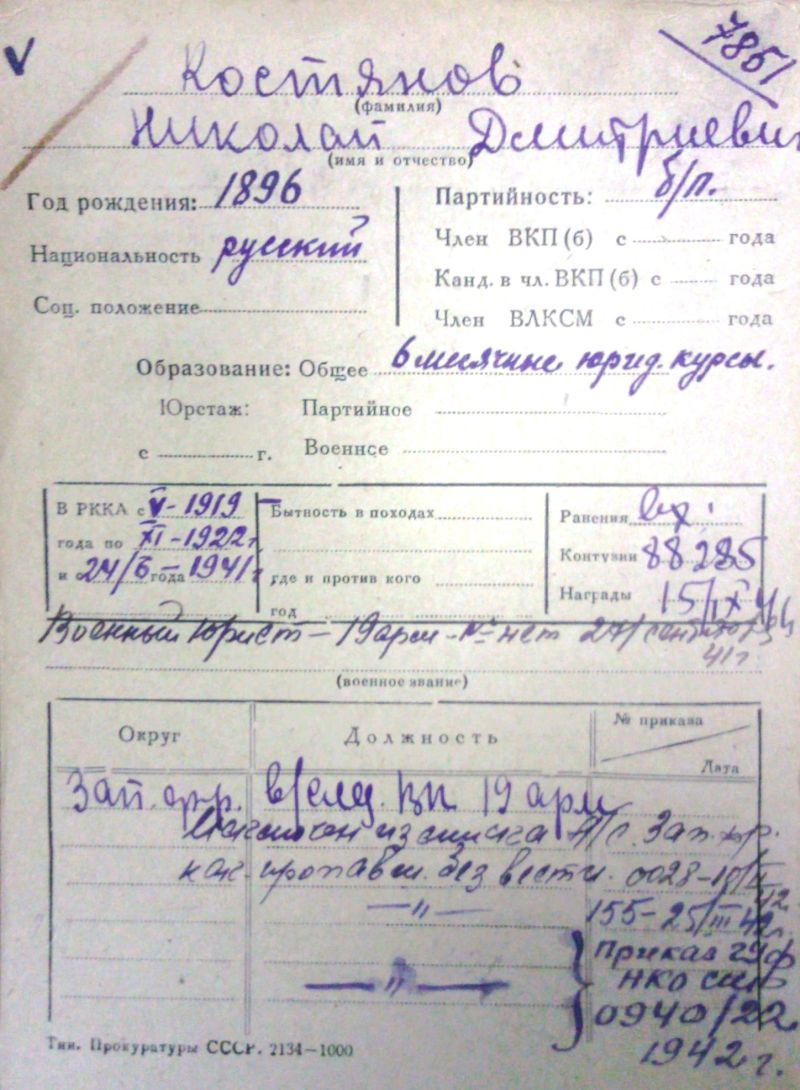 7851
Костянов
(фамилия)
Николай Дмитриевич
(имя и отчество)
Год рождения: 1896
Национальность русский
Соц. положение
Партийность: б/п.
Член ВКП (б) с года
Канд. в чл. ВКП (б) с года
Член ВЛКСМ с года
Образование: Общее 6 месячные юрид. курсы.
Юрстаж: Партийное
с г. Военное
В РККА с V-1919
года по XI-1922 г
и 24/6 года -1941 г
Бытность в походах
где и против кого
год
Ранения вх.
Контузии 88285
Награды 15/IX
Военный Юрист - 19 арм - № нет 27/
41 г
(военное звание)
Округ Должность № приказа
Дата
Зап. фр. в/след. ВП 19 арм
Исключен из списка Зап. фр.
как пропавш. без вести. 0028-
—〃— 155-25/III 42
—〃— Приказ
НКО
0940/22
1942 г.
Тип. Прокуратуры СССР. 2134—1000